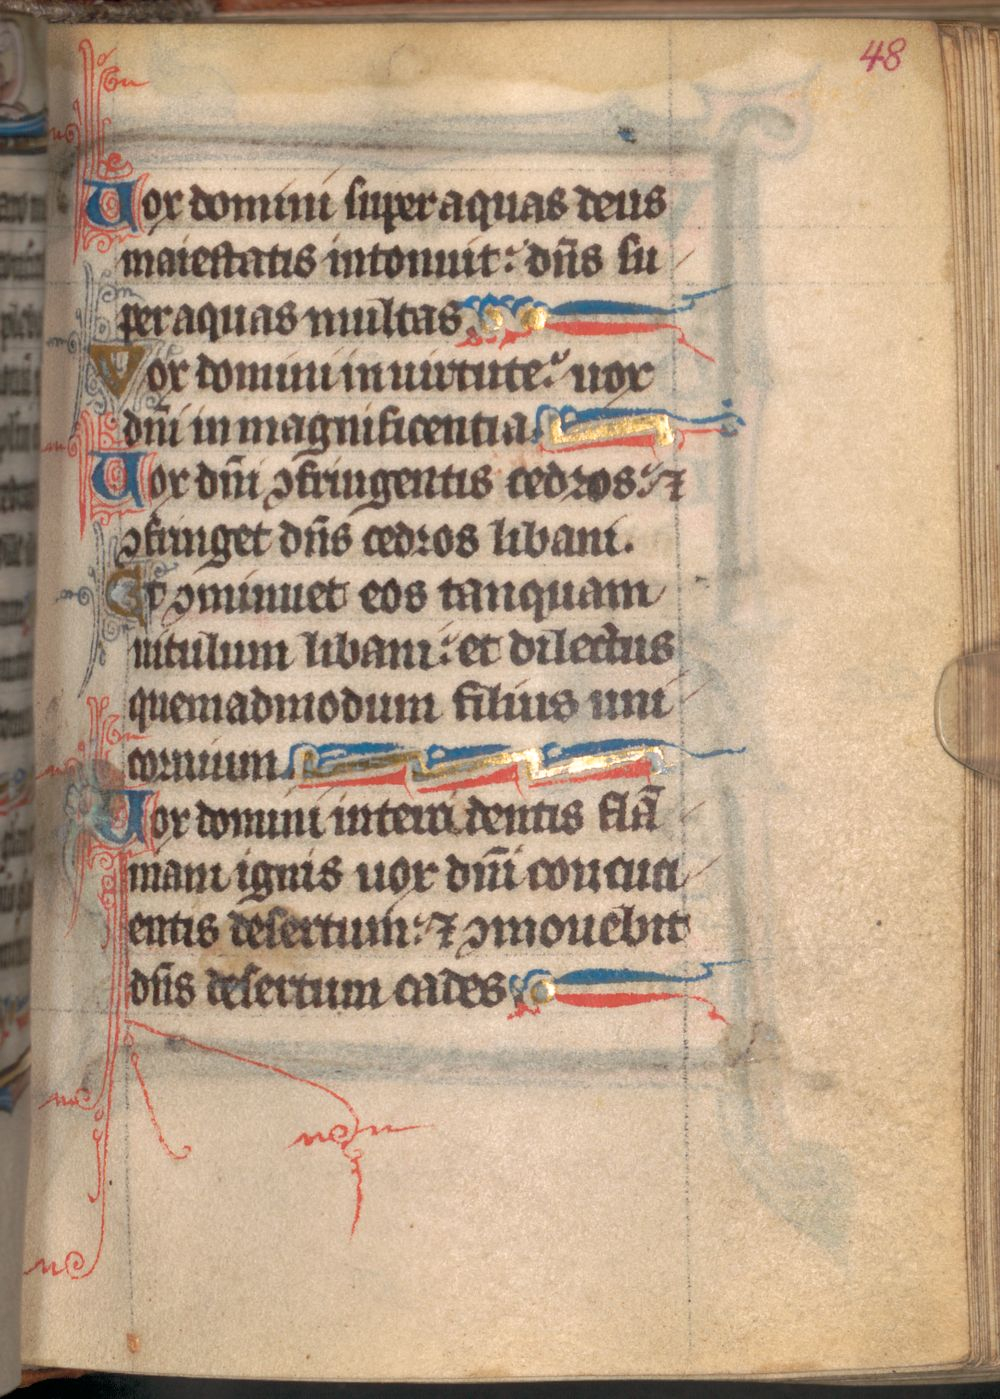 48
Uox domini super aquas deus
maiestatis intonuit: dn̄s su
per aquas multas
Vox domini in uirtute: uox
dn̄i in magnificentia
Uox dn̄i ꝯfringentis cedros: ⁊
ꝯfringet dn̄s cedros libani.
Et ꝯminuet eos tanquam
uitulum libani: et dilectus
quemadmodum filius uni
cornium
Uox domini interci dentis flā
mam ignis uox dn̄i concuci
entis desertum: ⁊ ꝯmouebit
dn̄s desertum cades